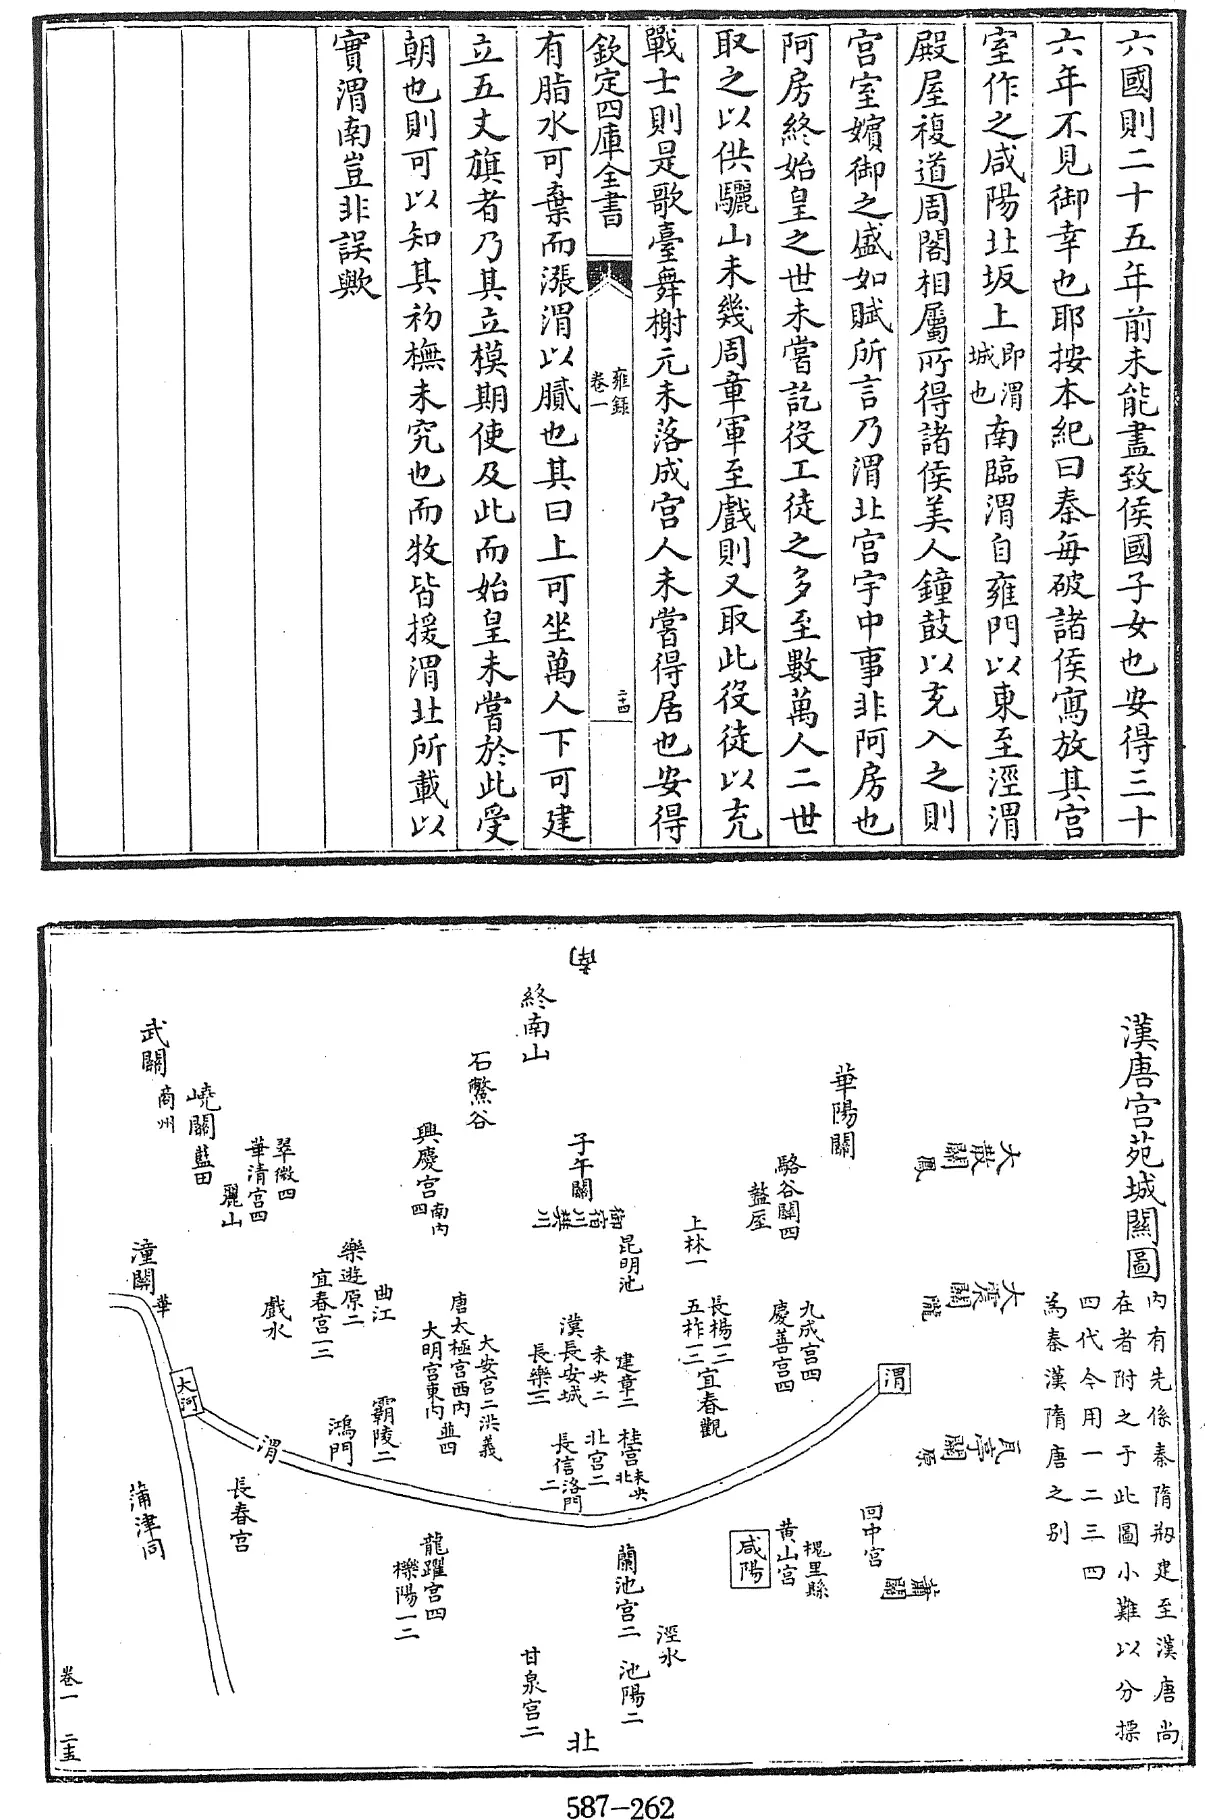 六國則二十五年前未能盡致侯國子女也安得三十
六年不見御幸也耶按本紀曰秦毎破諸侯寫放其宫
室作之咸陽北坂上即渭城也南臨渭自雍門以東至涇渭
殿屋複道周閣相屬所得諸侯美人鐘鼓以充入之則
宫室嬪御之盛如賦所言乃渭北宫宇中事非阿房也
阿房終始皇之世未嘗訖役工徒之多至數萬人二世
取之以供驪山未幾周章軍至戲則又取此役徒以充
戰士則是歌臺舞榭元未落成宫人未嘗得居也安得
欽定四庫全書
雍錄
卷一
二十四
有脂水可棄而漲渭以膩也其曰上可坐萬人下可建
立五丈旗者乃其立模期使及此而始皇未嘗於此受
朝也則可以知其初橅未究也而牧皆援渭北所載以
實渭南豈非誤歟
漢唐宫苑城關圖
内有先係秦隋剏建至漢唐尚
在者附之于此圖小難以分摽
四代今用一二三四
為秦漢隋唐之别
大散關鳳
大震關隴
瓦亭關原
蕭關
華陽關
駱谷關四
盩厔
九成宫四
慶善宫四
渭
回中宫
槐里縣
黄山宫
咸陽
上林一
長楊一二
五柞一二
宜春觀
南
終南山
子午關
御宿川樊川
昆明池
建章二
未央二
漢長安城
長樂二
桂宫未央北
北宫二
長信洛門二
蘭池宫二
池陽二
涇水
甘泉宫二
北
石鱉谷
興慶宫南内四
大安宫二洪義
唐太極宫西内
大明宫東内並四
曲江
樂遊原二
宜春宫一二
霸陵二
鴻門
龍躍宫四
櫟陽一二
戲水
翠微四
華清宫四
麗山
嶢關藍田
武關
商州
潼關華
大河
渭
長春宫
蒲津同
卷一
二十五
587-262